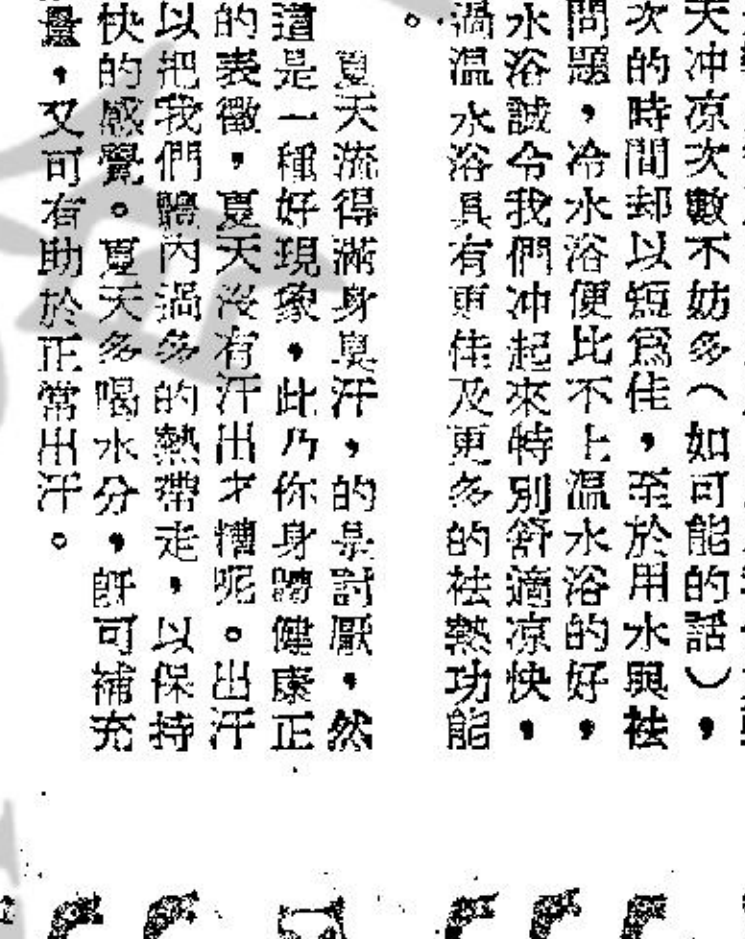 天冲凉次數不妨多（如可能的話），
次的時間却以短爲佳，至於用水與祛
問題，冷水浴便比不上温水浴的好，
水浴誠令我們冲起來特別舒適凉快，
過温水浴具有更佳及更多的祛熱功能
。
夏天流得滿身臭汗，的是討厭，然
這是一種好現象，此乃你身體健康正
的表徵，夏天沒有汗出才糟呢。出汗
以把我們體內過多的熱帶走，以保持
快的感覺。夏天多喝水分，旣可補充
量，又可有助於正常出汗。